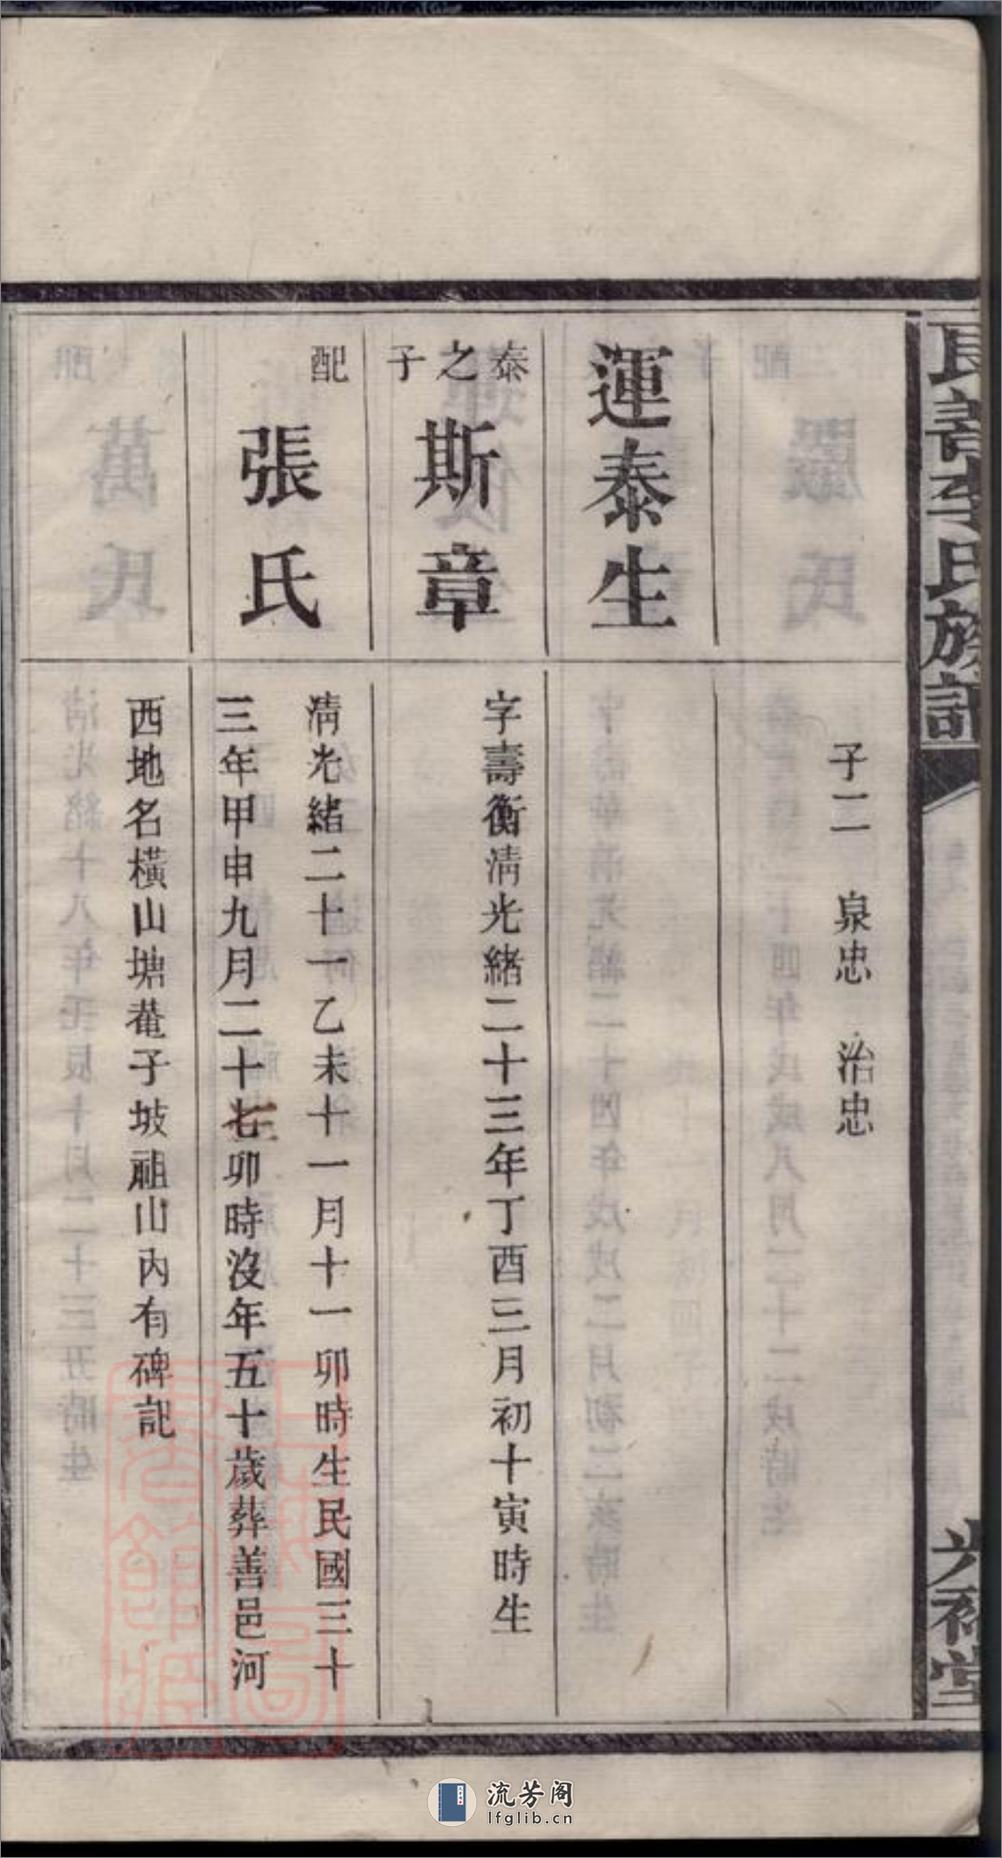 長善李氏族譜
光裕堂
子二　泉忠　治忠
運泰生
泰之子
斯章
字壽衡清光緒二十三年丁酉三月初十寅時生
配
張氏
清光緒二十一乙未十一月十一卯時生民國三十
三年甲申九月二十七卯時沒年五十歲葬善邑河
西地名橫山塘菴子坡祖山內有碑記
流芳阁
lfglib.cn